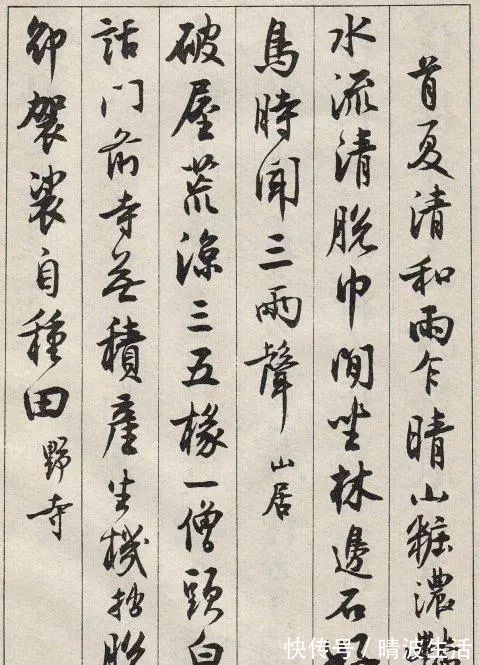 首夏清和雨乍晴山粧濃
水流清脫巾閒坐林邊石
鳥時聞三兩聲 山居
破屋荒涼三五椽一僧頭白
話門前寺無積產生機拙脫
卻袈裟自種田 野寺
快传号/晴波生活